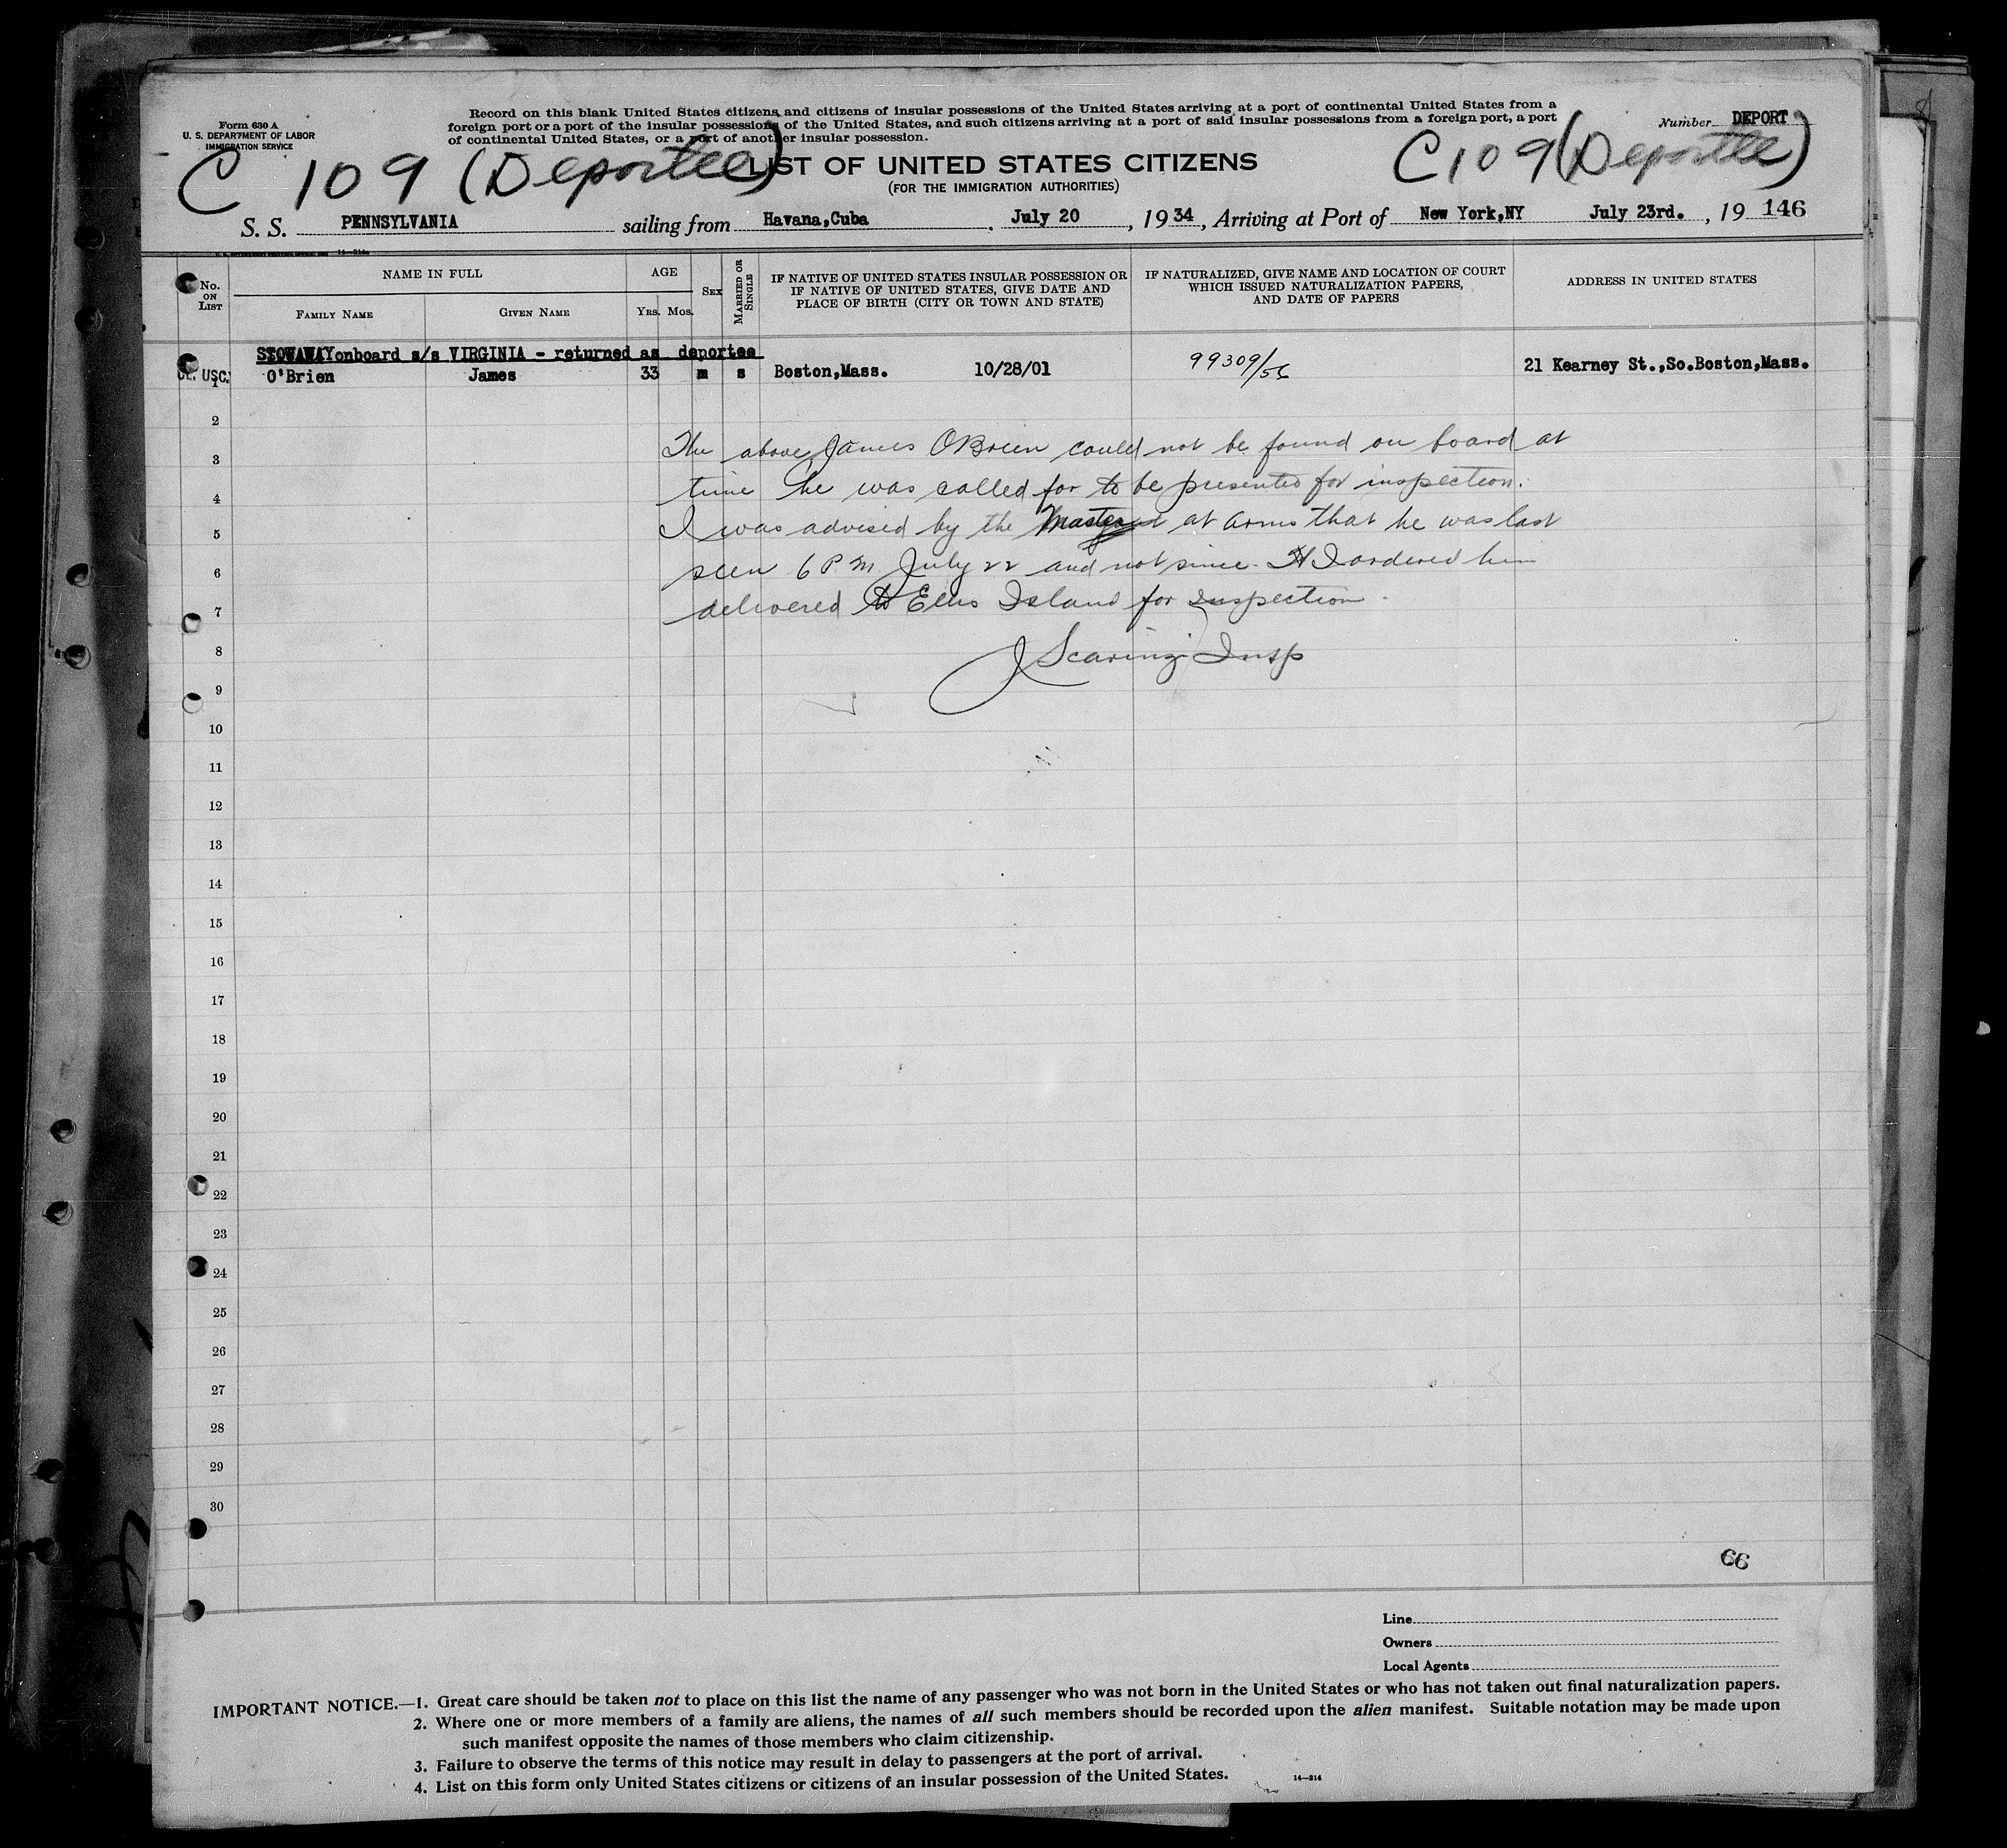 Form 630 A
U. S. DEPARTMENT OF LABOR
IMMIGRATION SERVICE
Record on this blank United States citizens and citizens of insular possessions of the United States arriving at a port of continental United States from a
foreign port or a port of the insular possessions of the United States, and such citizens arriving at a port of said insular possessions from a foreign port, a port
of continental United States, or a port of another insular possession.
Number DEPORT
C 109 (Deportee)
LIST OF UNITED STATES CITIZENS
C 109 (Deportee)
(FOR THE IMMIGRATION AUTHORITIES)
S. S. PENNSYLVANIA sailing from Havana,Cuba , July 20 , 19 34, Arriving at Port of New York,NY July 23rd. , 19 146
No. ON LIST
NAME IN FULL
FAMILY NAME
GIVEN NAME
AGE
YRS. MOS.
SEX
MARRIED OR SINGLE
IF NATIVE OF UNITED STATES INSULAR POSSESSION OR
IF NATIVE OF UNITED STATES, GIVE DATE AND
PLACE OF BIRTH (CITY OR TOWN AND STATE)
IF NATURALIZED, GIVE NAME AND LOCATION OF COURT
WHICH ISSUED NATURALIZATION PAPERS,
AND DATE OF PAPERS
ADDRESS IN UNITED STATES
STOWAWAY onboard s/s VIRGINIA - returned as deportee
1 USC. O'Brien James 33 m s Boston,Mass. 10/28/01 99309/56 21 Kearney St.,So.Boston,Mass.
2
The above James O'Brien could not be found on board at
3
time he was called for to be presented for inspection.
4
I was advised by the Master at arms that he was last
5
seen 6 P M July 22 and not since. I ordered him
6
delivered to Ellis Island for Inspection.
7
J Scaringi Insp
8
9
10
11
12
13
14
15
16
17
18
19
20
21
22
23
24
25
26
27
28
29
30
66
Line
Owners
Local Agents
IMPORTANT NOTICE.—1. Great care should be taken not to place on this list the name of any passenger who was not born in the United States or who has not taken out final naturalization papers.
2. Where one or more members of a family are aliens, the names of all such members should be recorded upon the alien manifest. Suitable notation may be made upon
such manifest opposite the names of those members who claim citizenship.
3. Failure to observe the terms of this notice may result in delay to passengers at the port of arrival.
4. List on this form only United States citizens or citizens of an insular possession of the United States.
14—214